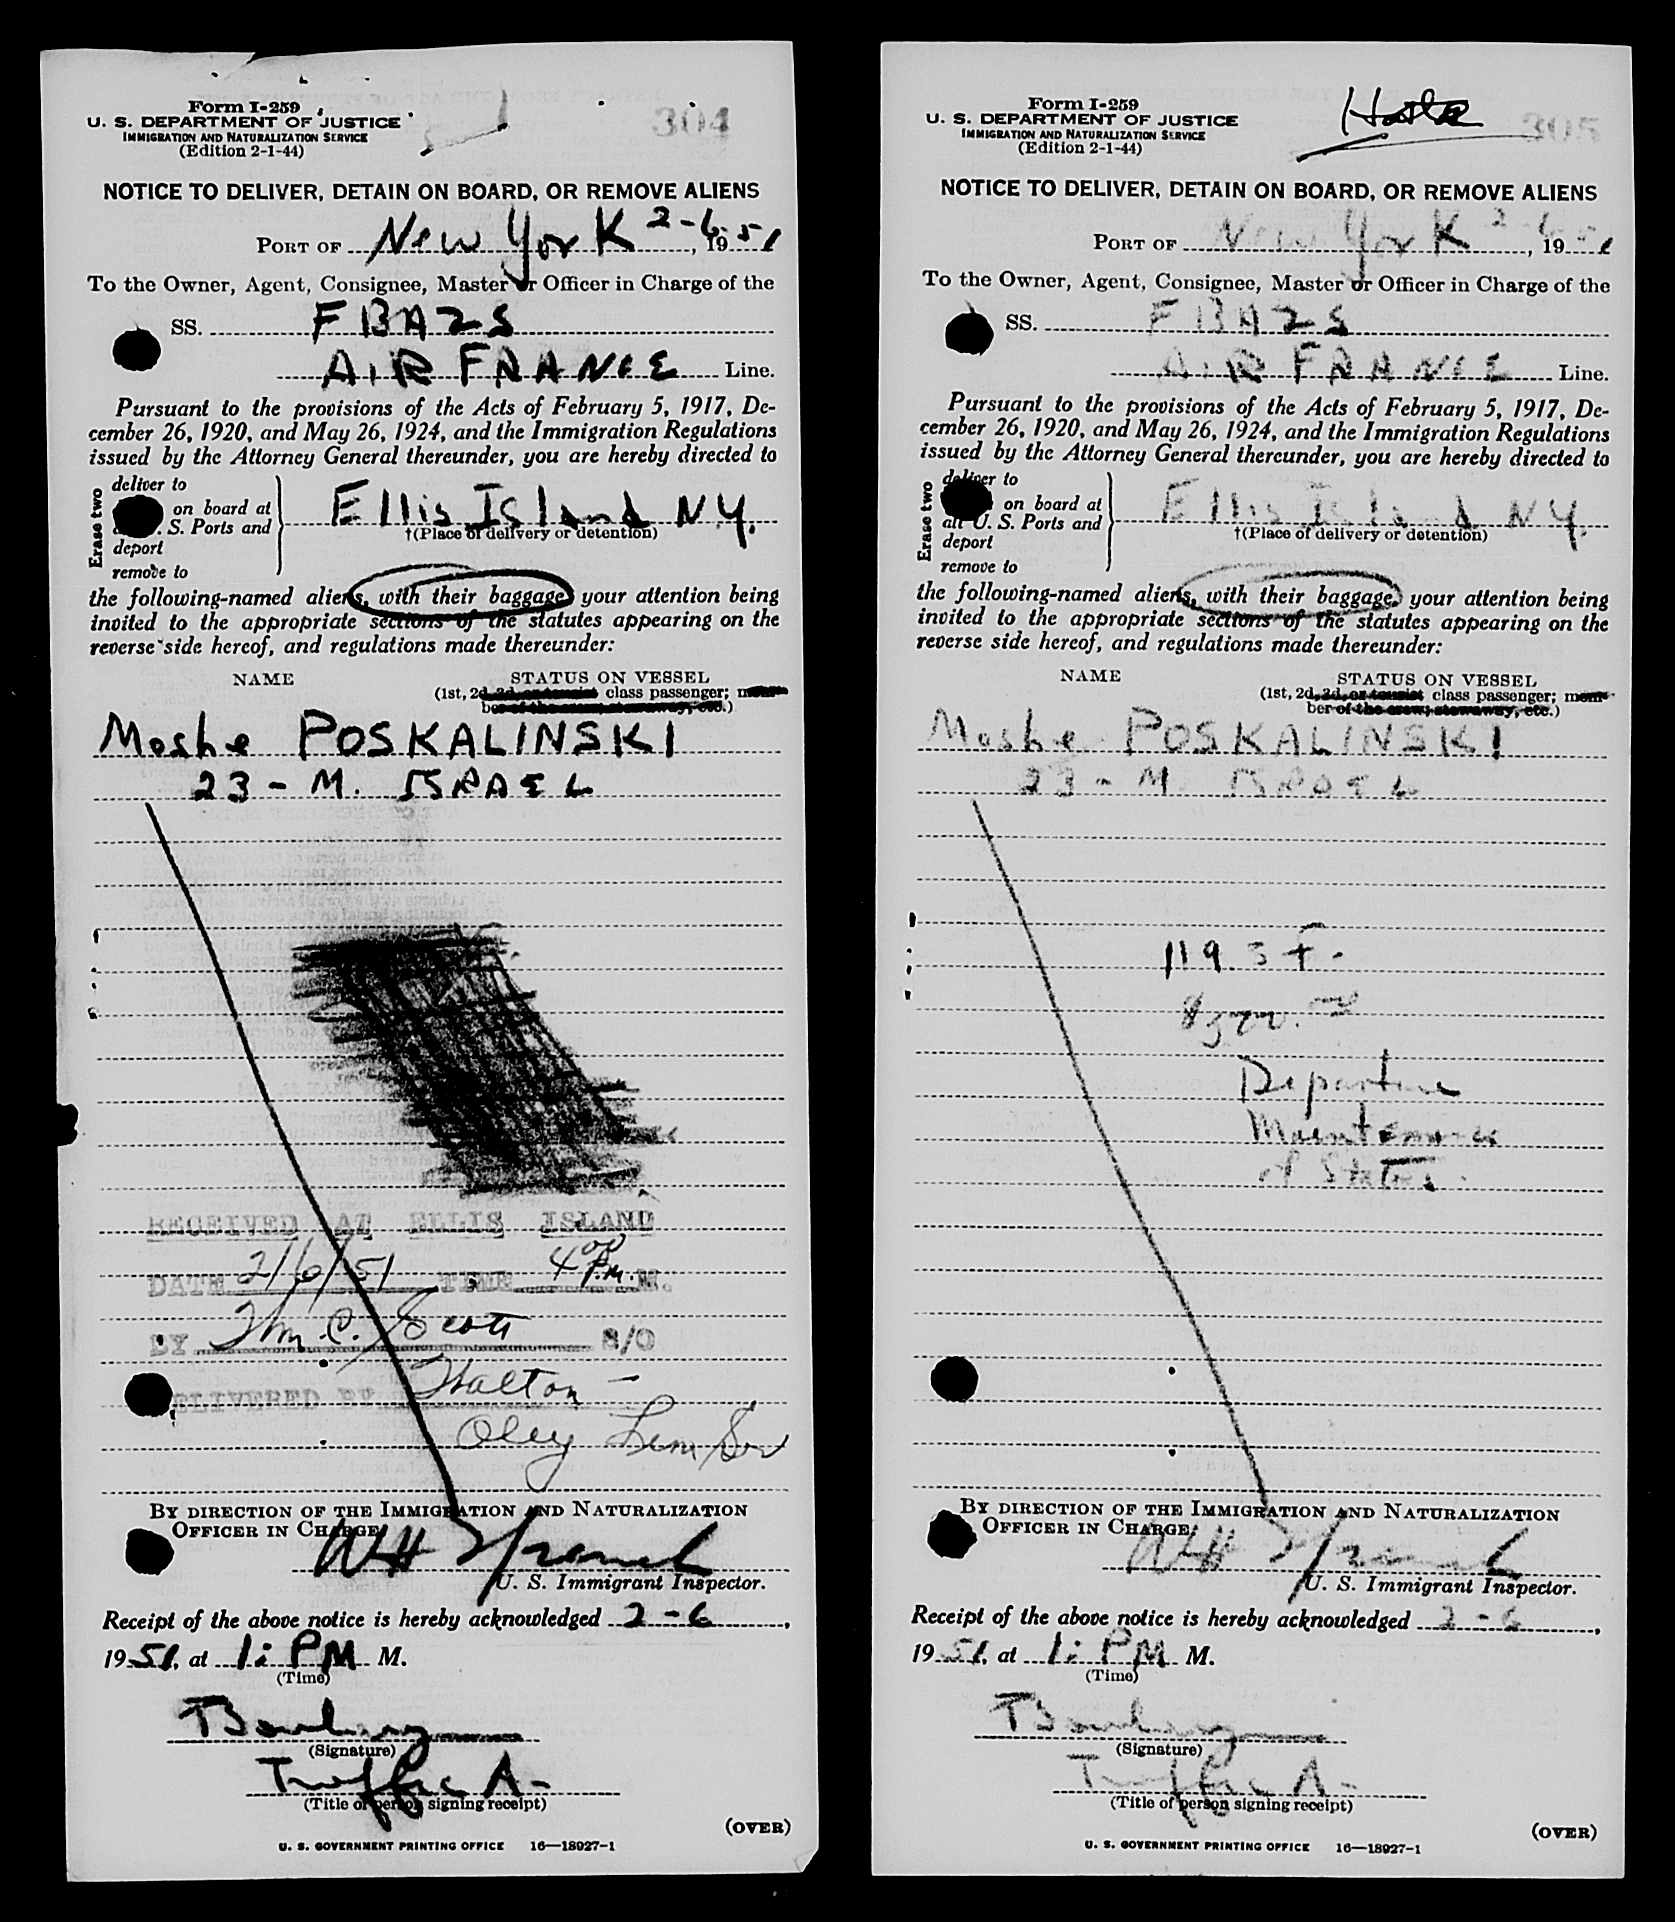 Form I-259
U. S. DEPARTMENT OF JUSTICE
IMMIGRATION AND NATURALIZATION SERVICE
(Edition 2-1-44)
304
NOTICE TO DELIVER, DETAIN ON BOARD, OR REMOVE ALIENS
PORT OF New York 2-6-, 1951
To the Owner, Agent, Consignee, Master or Officer in Charge of the
SS. FBAZS
AIR FRANCE Line.
Pursuant to the provisions of the Acts of February 5, 1917, De-
cember 26, 1920, and May 26, 1924, and the Immigration Regulations
issued by the Attorney General thereunder, you are hereby directed to
Erase two
deliver to
on board at
S. Ports and
deport
remove to
Ellis Island N.Y.
†(Place of delivery or detention)
the following-named aliens, with their baggage, your attention being
invited to the appropriate sections of the statutes appearing on the
reverse side hereof, and regulations made thereunder:
NAME STATUS ON VESSEL
(1st, 2d, 3d, or tourist class passenger; mem-
ber of the crew; stowaway, etc.)
Moshe POSKALINSKI
23 - M. ISRAEL
RECEIVED AT ELLIS ISLAND
DATE 2/6/51 TIME 4 00 P.M. M.
BY Wm. C. Scott S/O
DELIVERED BY Walton -
Oley
BY DIRECTION OF THE IMMIGRATION AND NATURALIZATION
OFFICER IN CHARGE:
U. S. Immigrant Inspector.
Receipt of the above notice is hereby acknowledged 2-6,
1951, at 1: PM M.
(Time)
(Signature)
Traffic A-
(Title of person signing receipt)
(OVER)
U. S. GOVERNMENT PRINTING OFFICE 16—18927-1
Form I-259
U. S. DEPARTMENT OF JUSTICE
IMMIGRATION AND NATURALIZATION SERVICE
(Edition 2-1-44)
305
NOTICE TO DELIVER, DETAIN ON BOARD, OR REMOVE ALIENS
PORT OF New York 2-6-, 1951
To the Owner, Agent, Consignee, Master or Officer in Charge of the
SS. FBAZS
AIR FRANCE Line.
Pursuant to the provisions of the Acts of February 5, 1917, De-
cember 26, 1920, and May 26, 1924, and the Immigration Regulations
issued by the Attorney General thereunder, you are hereby directed to
Erase two
deliver to
on board at
all U. S. Ports and
deport
remove to
Ellis Island N.Y.
†(Place of delivery or detention)
the following-named aliens, with their baggage, your attention being
invited to the appropriate sections of the statutes appearing on the
reverse side hereof, and regulations made thereunder:
NAME STATUS ON VESSEL
(1st, 2d, 3d, or tourist class passenger; mem-
ber of the crew; stowaway, etc.)
Moshe POSKALINSKI
23 - M. ISRAEL
119.3 f.
$500.
Departure
Maintenance
of Status.
BY DIRECTION OF THE IMMIGRATION AND NATURALIZATION
OFFICER IN CHARGE:
U. S. Immigrant Inspector.
Receipt of the above notice is hereby acknowledged 2-6,
1951, at 1: PM M.
(Time)
(Signature)
Traffic A-
(Title of person signing receipt)
(OVER)
U. S. GOVERNMENT PRINTING OFFICE 16—18927-1